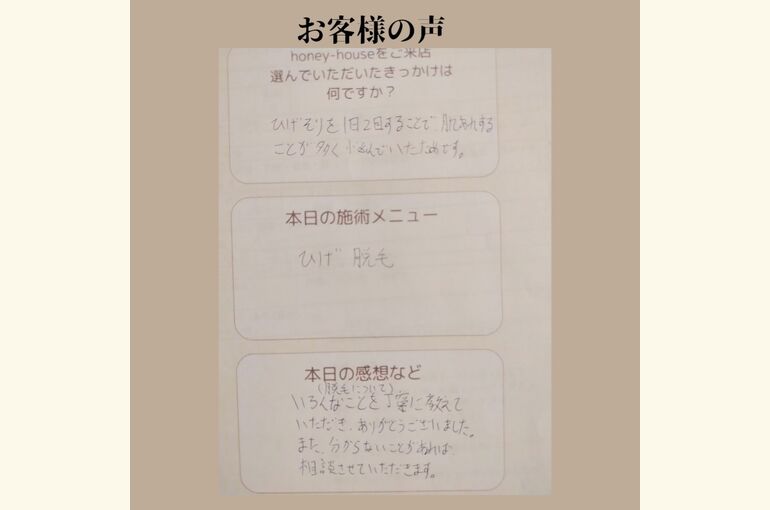 お客様の声
honey-houseをご来店
選んでいただいたきっかけは
何ですか？
ひげそりを1日2回することで、肌あれする
ことが多く、悩んでいたためです。
本日の施術メニュー
ひげ 脱毛
本日の感想など
(脱毛について)
いろんなことを丁寧に教えて
いただき、ありがとうございました。
また、分からないことがあれば、
相談させていただきます。